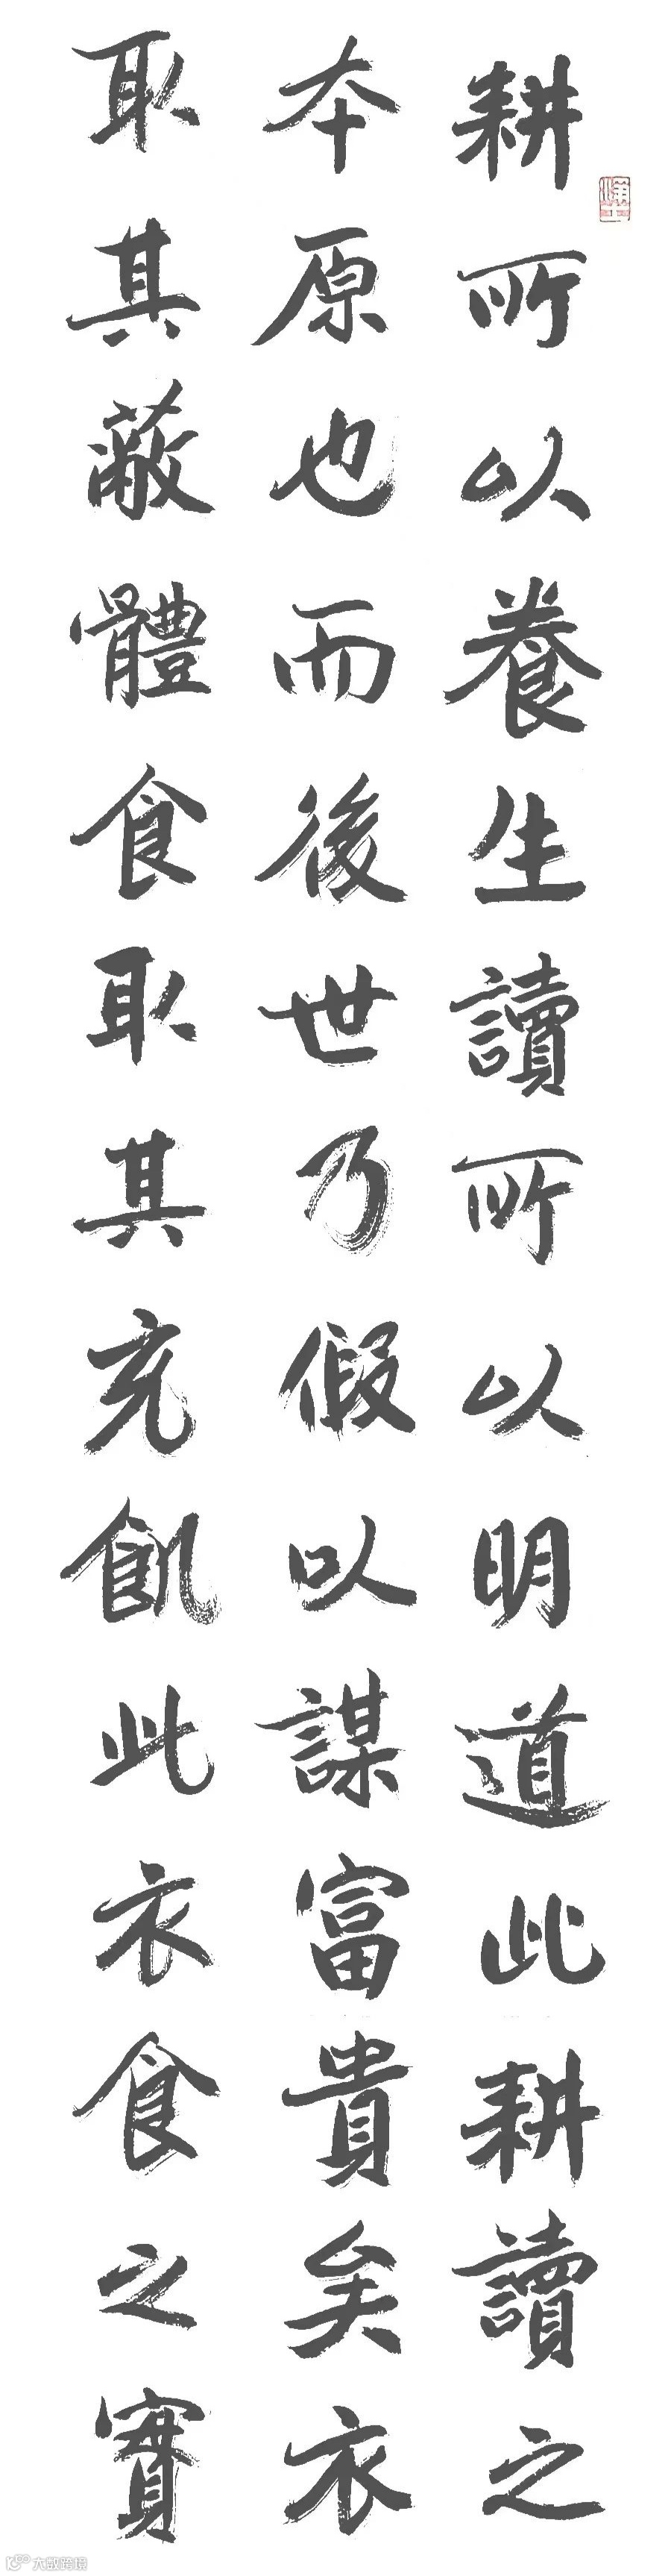 耕所以養生讀所以明道此耕讀之
本原也而後世乃假以謀富貴矣衣
取其蔽體食取其充飢此衣食之實
大数跨境